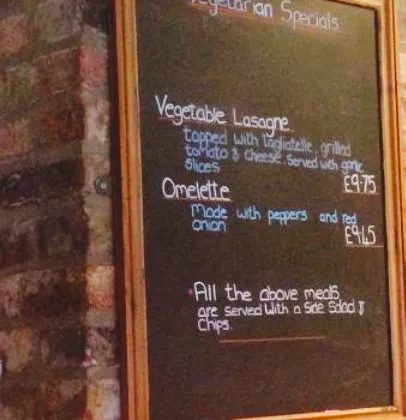 Vegetarian Specials
Vegetable Lasagne
topped with tagliatelle, grilled
tomato & cheese. Served with garlic
slices
£9.75
Omelette
Made with peppers and red
onion
£9.45
All the above meals
are served With a Side Salad &
Chips.